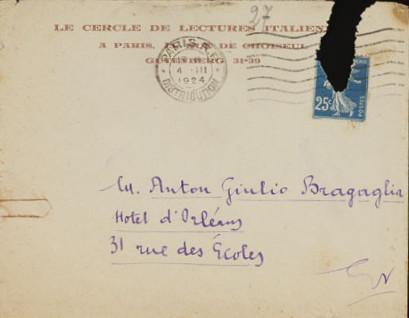 27
LE CERCLE DE LECTURES ITALIEN
A PARIS, RUE DE CHOISEUL
GUTENBERG 31-39
PARIS
4 - III
1924
DISTRIBUTION
25c
POSTES
M. Anton Giulio Bragaglia
Hotel d'Orléans
31 rue des Écoles